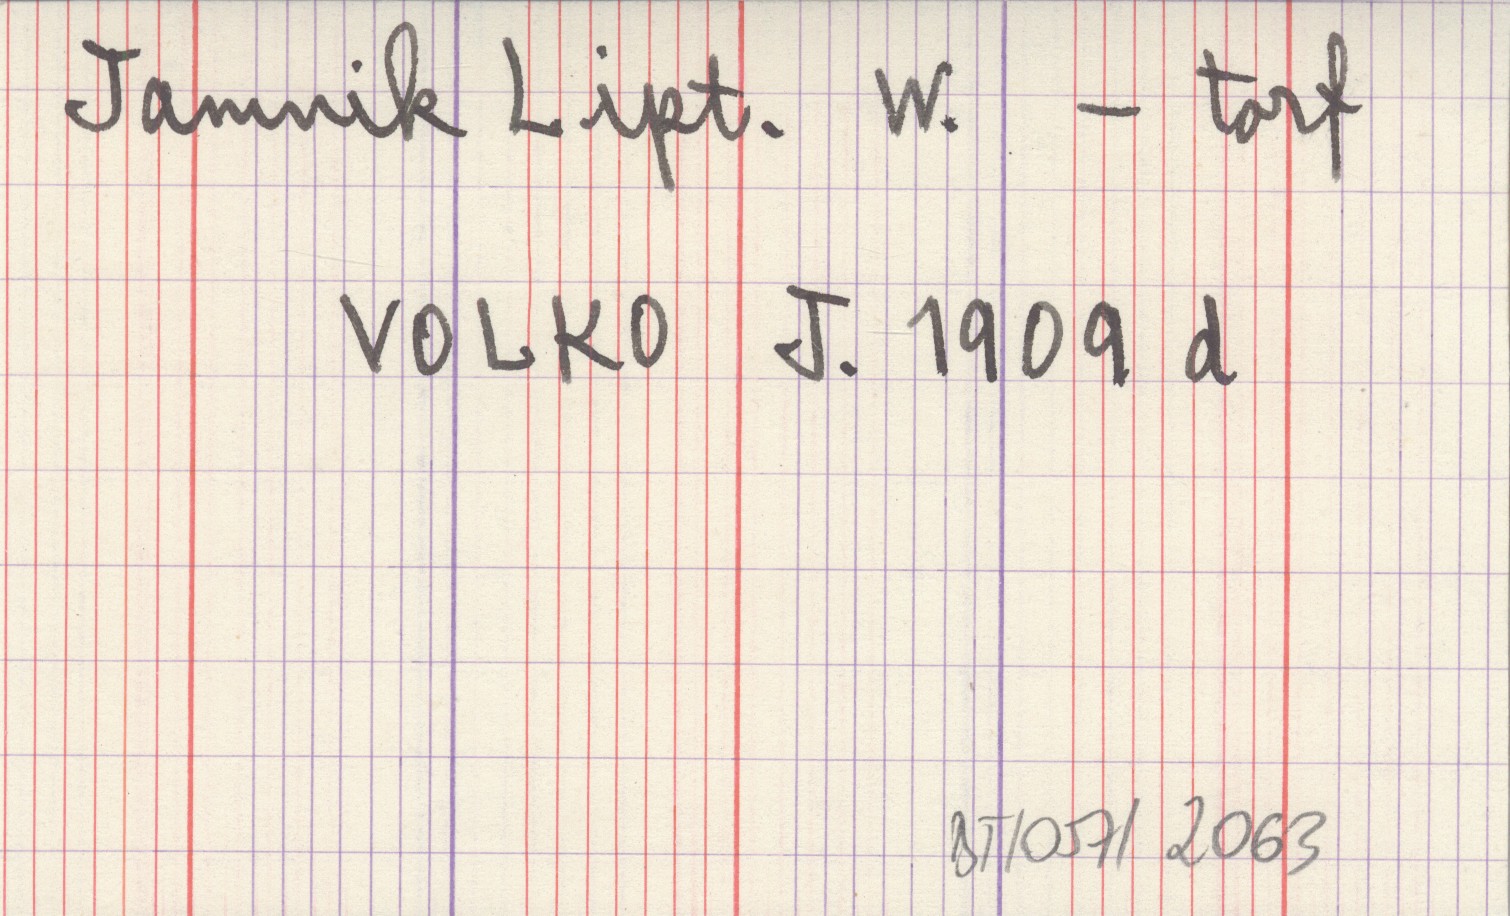 Jamnik Lipt. W. - torf
VOLKO J. 1909 d
BT/057/ 2063